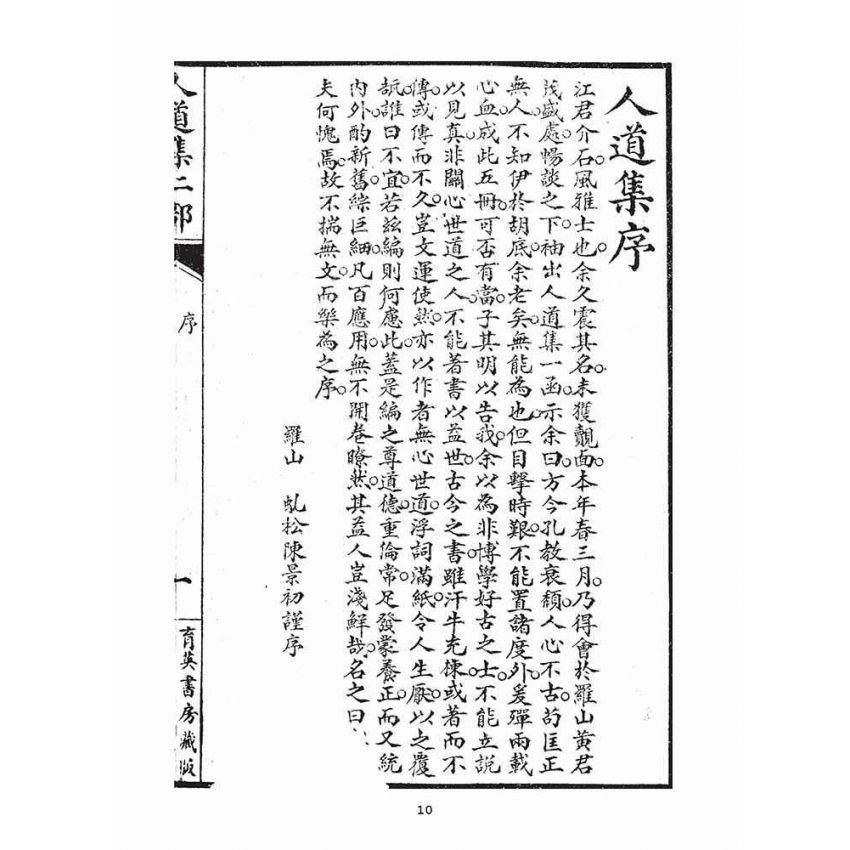 人道集序
江君介石。風雅士也。余久震其名。未獲覿面。本年春三月。乃得會於羅山黃君
茂盛處。暢談之下。袖出人道集一函。示余曰。方今孔教衰頹。人心不古。苟匡正
無人。不知伊於胡底。余老矣。無能為也。但目擊時艱。不能置諸度外。爰殫兩載
心血。成此五冊。可否有當。子其明以告我。余以為非博學好古之士。不能立說
以見真。非關心世道之人。不能著書以益世。古今之書。雖汗牛充棟。或著而不
傳。或傳而不久。豈文運使然。亦以作者無心世道。浮詞滿紙。令人生厭。以之覆
瓿。誰曰不宜。若茲編則何慮此。蓋是編之尊道德。重倫常。足發蒙養正。而又統
內外。酌新舊。綜巨細。凡百應用。無不開卷瞭然。其益人豈淺鮮哉。名之曰
夫何愧焉。故不揣無文。而樂為之序。
羅山 虬松陳景初謹序
人道集二部
序
一
育英書房藏版
10